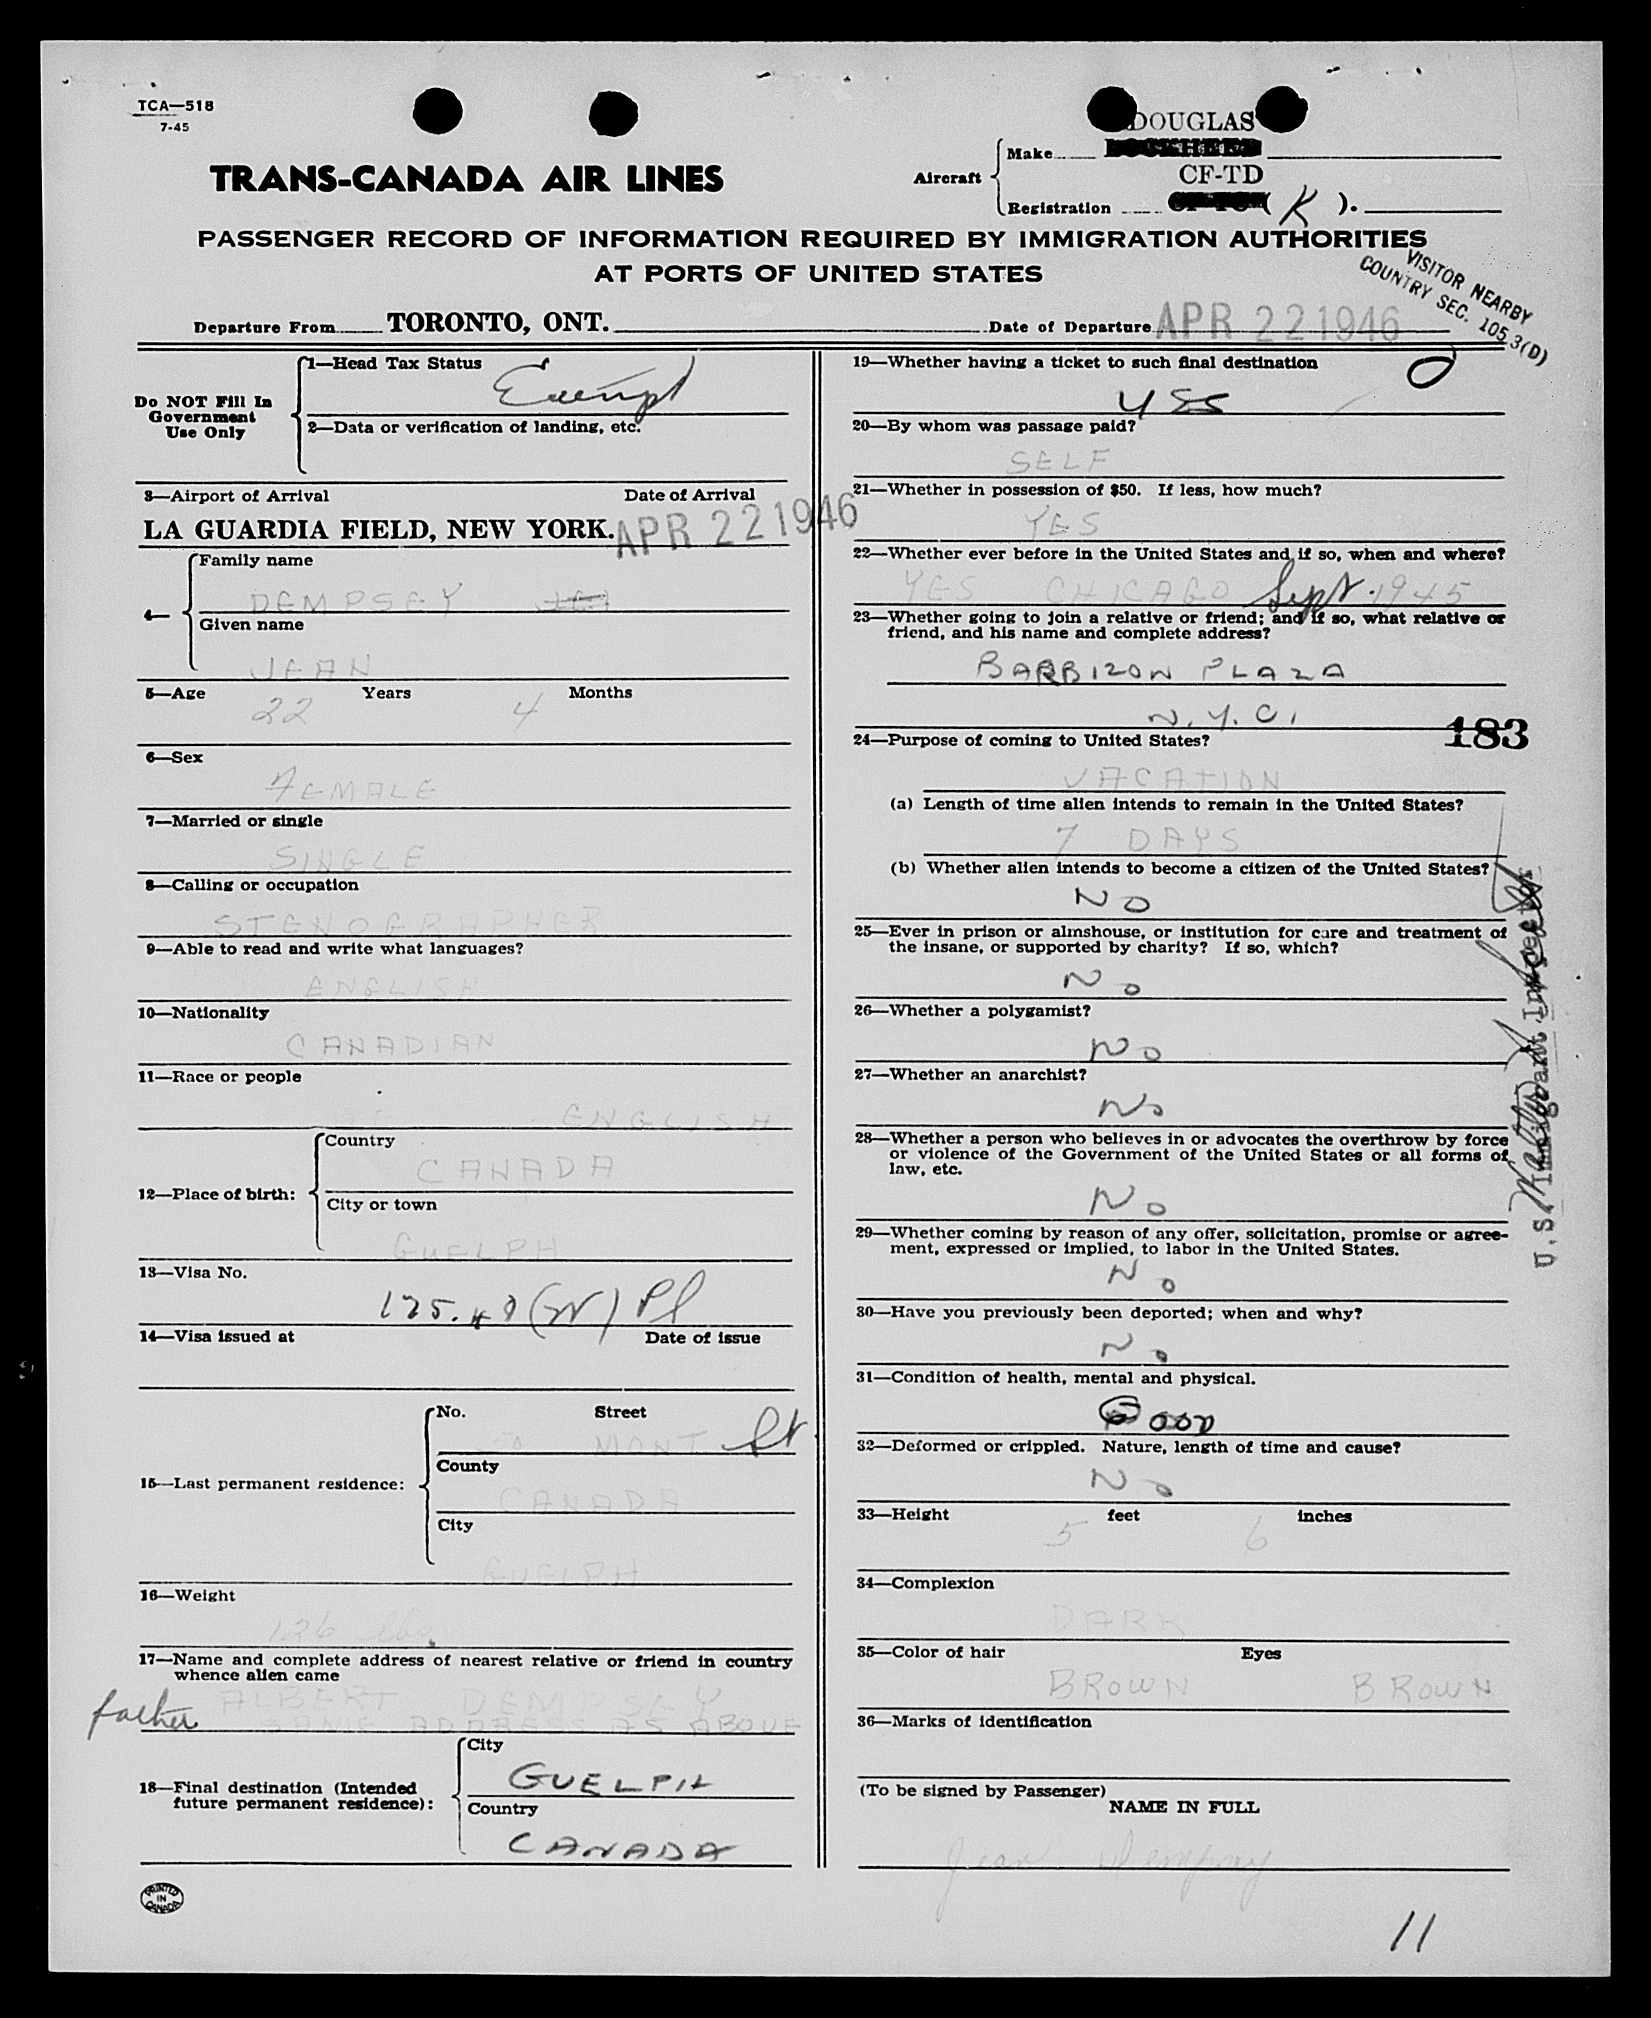 TCA—518
7-45
DOUGLAS
Make
TRANS-CANADA AIR LINES
Aircraft
CF-TD
Registration (K).
PASSENGER RECORD OF INFORMATION REQUIRED BY IMMIGRATION AUTHORITIES
AT PORTS OF UNITED STATES
VISITOR NEARBY
COUNTRY SEC. 105.3(D)
Departure From TORONTO, ONT. Date of Departure APR 22 1946
Do NOT Fill In
Government
Use Only
1—Head Tax Status
Exempt
2—Data or verification of landing, etc.
3—Airport of Arrival Date of Arrival
LA GUARDIA FIELD, NEW YORK. APR 22 1946
4—
Family name
DEMPSEY
Given name
JEAN
5—Age Years Months
22 4
6—Sex
FEMALE
7—Married or single
SINGLE
8—Calling or occupation
STENOGRAPHER
9—Able to read and write what languages?
ENGLISH
10—Nationality
CANADIAN
11—Race or people
ENGLISH
12—Place of birth:
Country
CANADA
City or town
GUELPH
13—Visa No.
14—Visa issued at Date of issue
15—Last permanent residence:
No. Street
MONT St
County
CANADA
City
GUELPH
16—Weight
126 lbs.
17—Name and complete address of nearest relative or friend in country
whence alien came
father ALBERT DEMPSEY
SAME ADDRESS AS ABOVE
18—Final destination (Intended
future permanent residence):
City
GUELPH
Country
CANADA
PRINTED
IN
CANADA
19—Whether having a ticket to such final destination
YES
20—By whom was passage paid?
SELF
21—Whether in possession of $50. If less, how much?
YES
22—Whether ever before in the United States and if so, when and where?
YES CHICAGO Sept. 1945
23—Whether going to join a relative or friend; and if so, what relative or
friend, and his name and complete address?
BARBIZON PLAZA
N.Y.C.
183
24—Purpose of coming to United States?
VACATION
(a) Length of time alien intends to remain in the United States?
7 DAYS
(b) Whether alien intends to become a citizen of the United States?
NO
25—Ever in prison or almshouse, or institution for care and treatment of
the insane, or supported by charity? If so, which?
No
26—Whether a polygamist?
No
27—Whether an anarchist?
No
28—Whether a person who believes in or advocates the overthrow by force
or violence of the Government of the United States or all forms of
law, etc.
No
29—Whether coming by reason of any offer, solicitation, promise or agree-
ment, expressed or implied, to labor in the United States.
No
30—Have you previously been deported; when and why?
No
31—Condition of health, mental and physical.
GOOD
32—Deformed or crippled. Nature, length of time and cause?
No
33—Height feet inches
5 6
34—Complexion
DARK
35—Color of hair Eyes
BROWN BROWN
36—Marks of identification
(To be signed by Passenger)
NAME IN FULL
Jean Dempsey
U.S. Immigrant Inspector
11